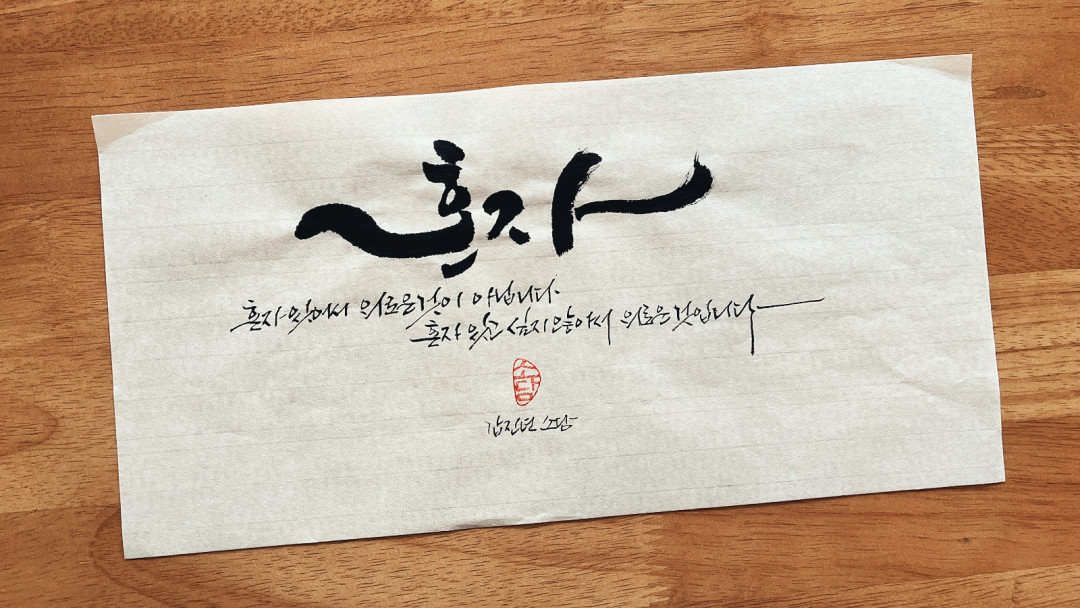 혼자
혼자 있어서 외로운것이 아닙니다.
혼자 있고 싶지않아서 외로운것입니다
소담
갑진년 소담